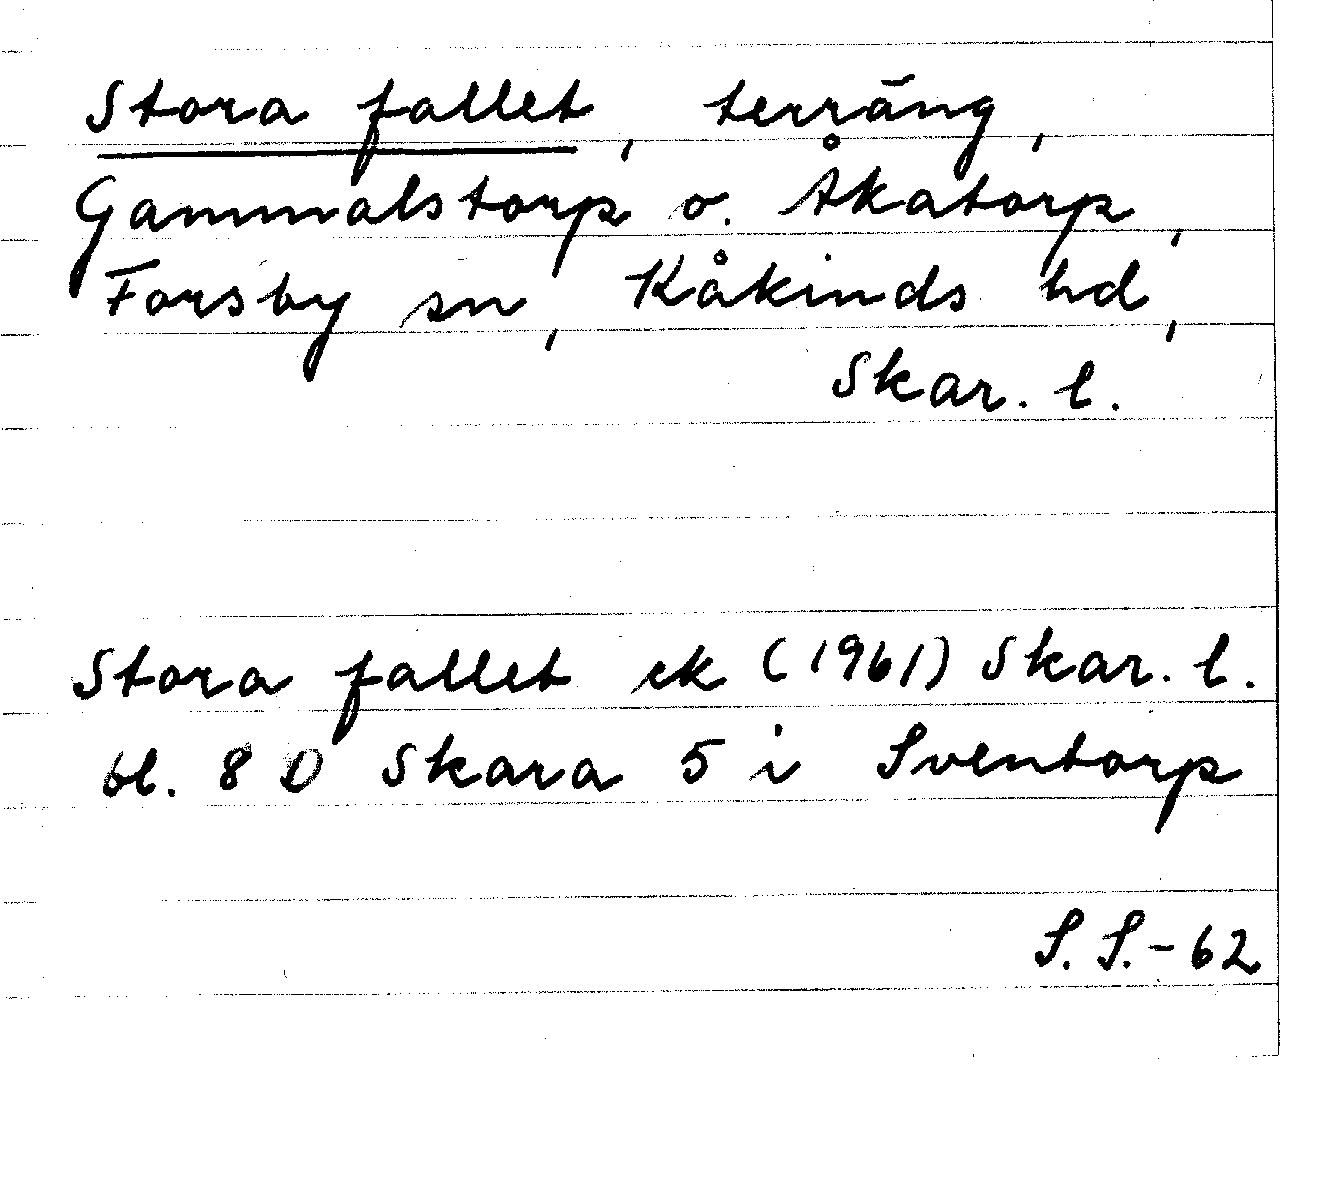 Stora fallet, terräng,
Gammalstorp o. Åkatorp,
Forsby sn, Kåkinds hd,
Skar. l.
Stora fallet ek (1961) Skar. l.
bl. 8 D Skara 5 i Sventorp
S. S. - 62